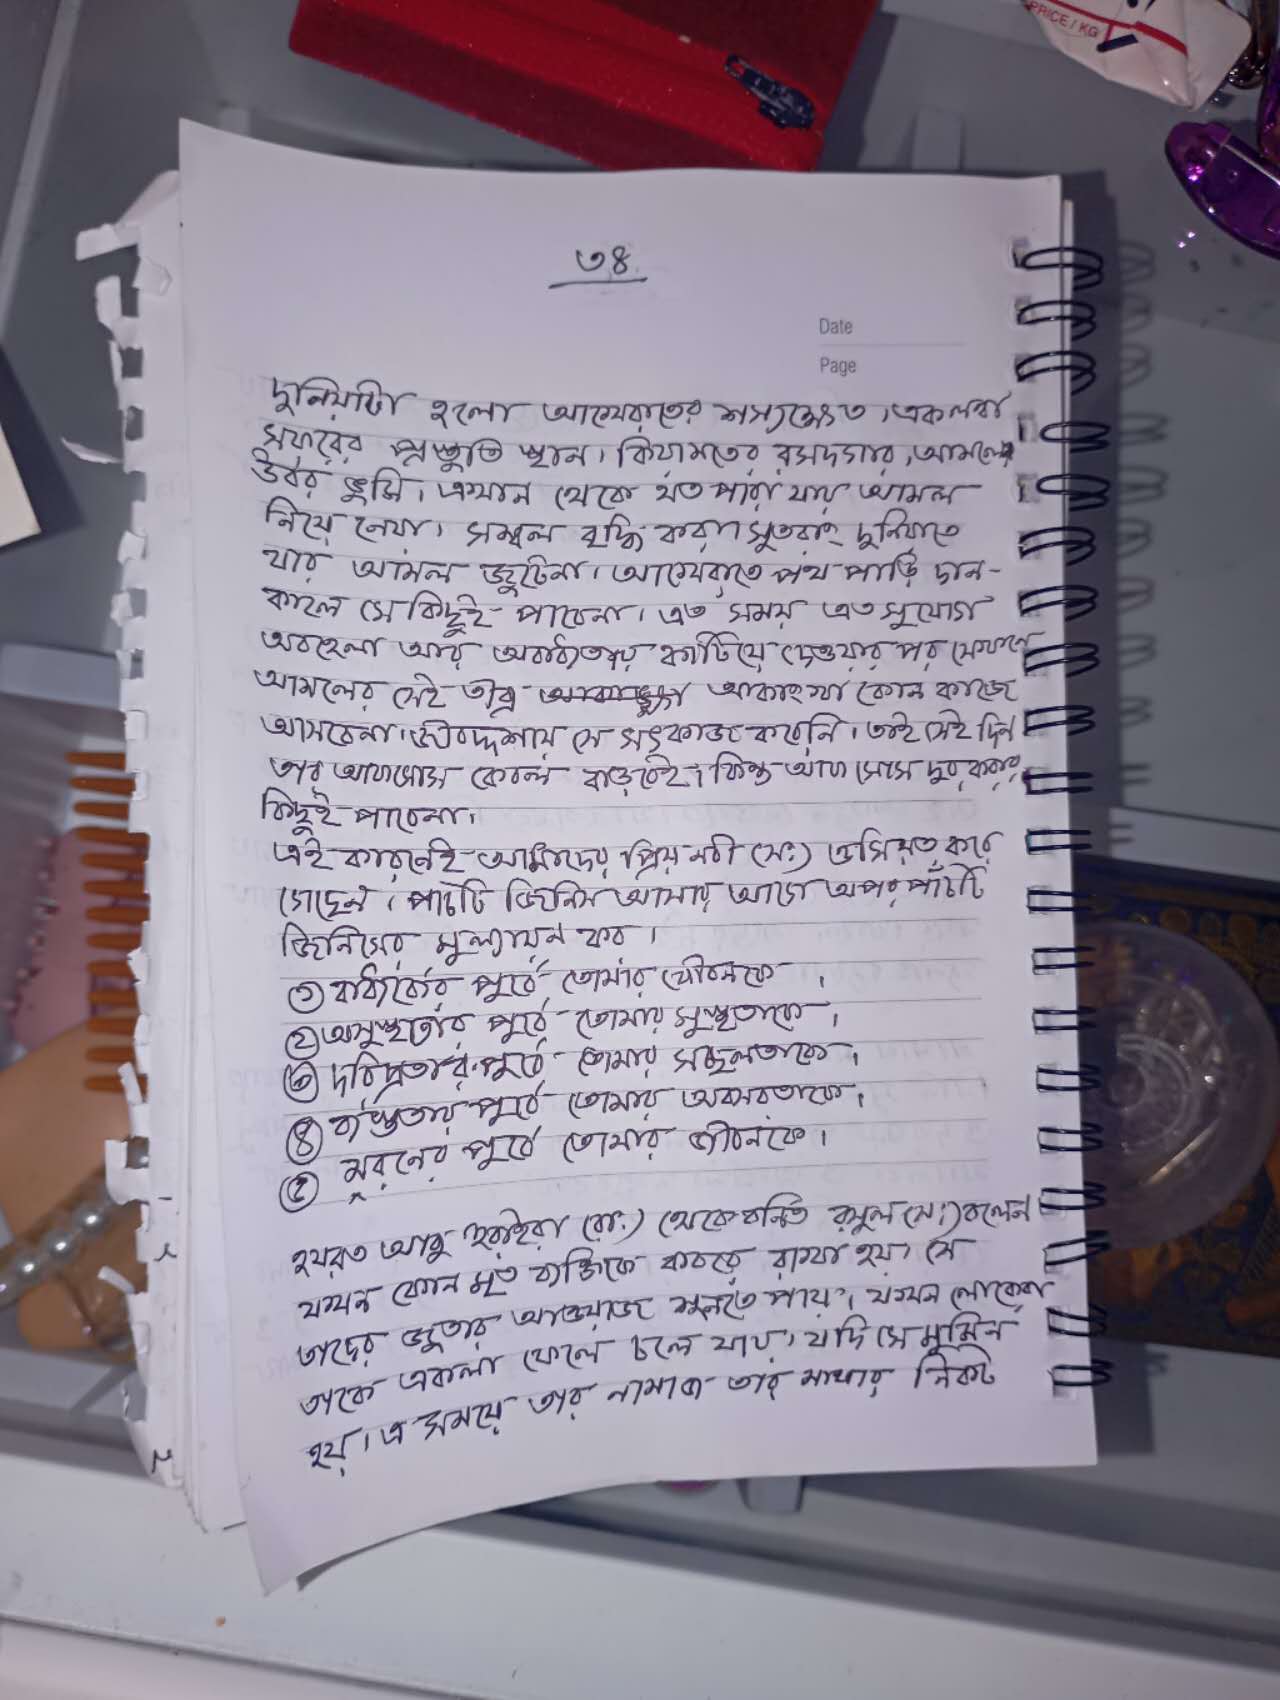 PRICE / KG
৩৪
Date
Page
দুনিয়াটা হলো আখেরাতের শস্যক্ষেত। একলম্বা
সফরের প্রস্তুতি স্থান। কিয়ামতের রসদগার, আমলের
উর্বর ভূমি। এখান থেকে যত পারা যায় আমল
নিয়ে নেয়া। সম্বল বৃদ্ধি করা। সুতরাং দুনিয়াতে
যার আমল জুটেনা। আখেরাতে পথ পাড়ি দান-
কালে সে কিছুই পাবেনা। এত সময় এত সুযোগ
অবহেলা আর অবাধ্যতায় কাটিয়ে দেওয়ার পর সেখানে
আমলের সেই তীব্র আকাংখা কোন কাজে
আসবেনা। জীবদ্দশায় সে সৎকাজ করেনি। তাই সেই দিন
তার আফসোস কেবল বাড়বেই। কিন্তু আফসোস দুর করার
কিছুই পাবেনা।
এই কারনেই আমাদের প্রিয় নবী (সঃ) ওসিয়ত করে
গেছেন। পাঁচটি জিনিস আসার আগে অপর পাঁচটি
জিনিসের মূল্যায়ন কর।
১ বার্ধক্যের পূর্বে তোমার যৌবনকে।
২ অসুস্থতার পূর্বে তোমার সুস্থতাকে।
৩ দরিদ্রতার পূর্বে তোমার সচ্ছলতাকে।
৪ ব্যস্ততার পূর্বে তোমার অবসরতাকে।
৫ মরনের পূর্বে তোমার জীবনকে।
হযরত আবু হুরাইরা (রাঃ) থেকে বর্নিত রসুল (সঃ) বলেন
যখন কোন মৃত ব্যক্তিকে কবরে রাখা হয়। সে
তাদের জুতার আওয়াজ শুনতে পায়। যখন লোকেরা
তাকে একলা ফেলে চলে যায়। যদি সে মুমিন
হয়। এ সময়ে তার নামাজ তার মাথার নিকট